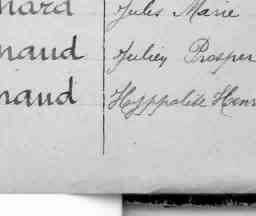 nard Jules Marie
naud Julien Prosper
naud Hyppolite Henr